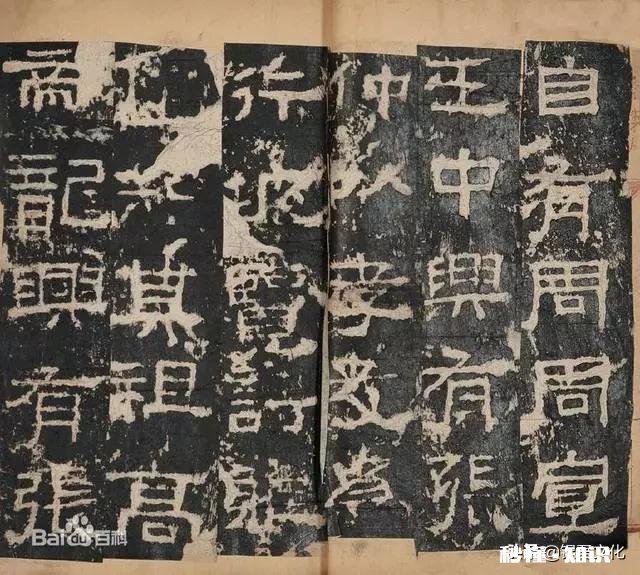 自有周周宣
王中興有張
仲以孝友為
行披覽詩雅
其祖高
帝龍興有張
Bai百科
秒懂·知识